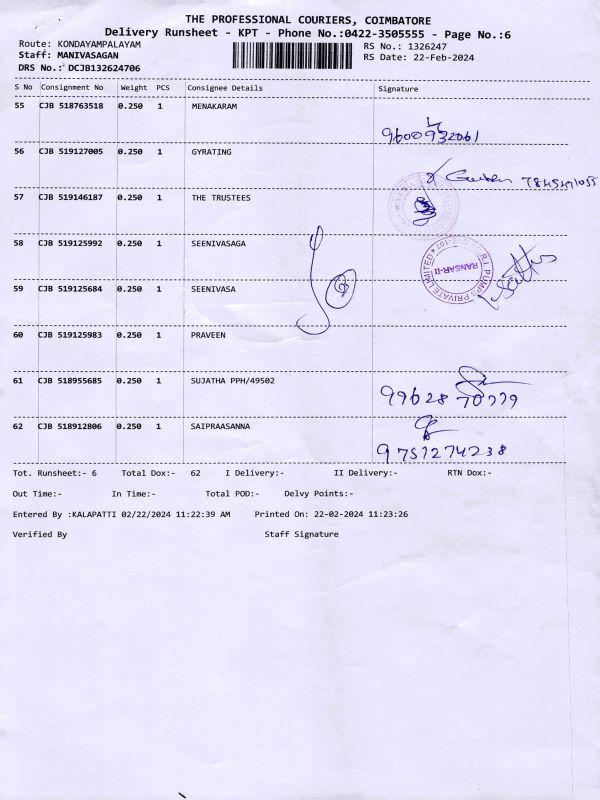 THE PROFESSIONAL COURIERS, COIMBATORE
Delivery Runsheet - KPT - Phone No.:0422-3505555 - Page No.:6
Route: KONDAYAMPALAYAM RS No.: 1326247
Staff: MANIVASAGAN RS Date: 22-Feb-2024
DRS No.: DCJB132624706
S No Consignment No Weight PCS Consignee Details Signature
55 CJB 518763518 0.250 1 MENAKARAM
9600932061
56 CJB 519127005 0.250 1 GYRATING
57 CJB 519146187 0.250 1 THE TRUSTEES
58 CJB 519125992 0.250 1 SEENIVASAGA
R.I. PUMPS PRIVATE LIMITED
RANSAR-II
59 CJB 519125684 0.250 1 SEENIVASA
60 CJB 519125983 0.250 1 PRAVEEN
61 CJB 518955685 0.250 1 SUJATHA PPH/49502
62 CJB 518912806 0.250 1 SAIPRAASANNA
9751274238
Tot. Runsheet:- 6 Total Dox:- 62 I Delivery:- II Delivery:- RTN Dox:-
Out Time:- In Time:- Total POD:- Delvy Points:-
Entered By :KALAPATTI 02/22/2024 11:22:39 AM Printed On: 22-02-2024 11:23:26
Verified By Staff Signature